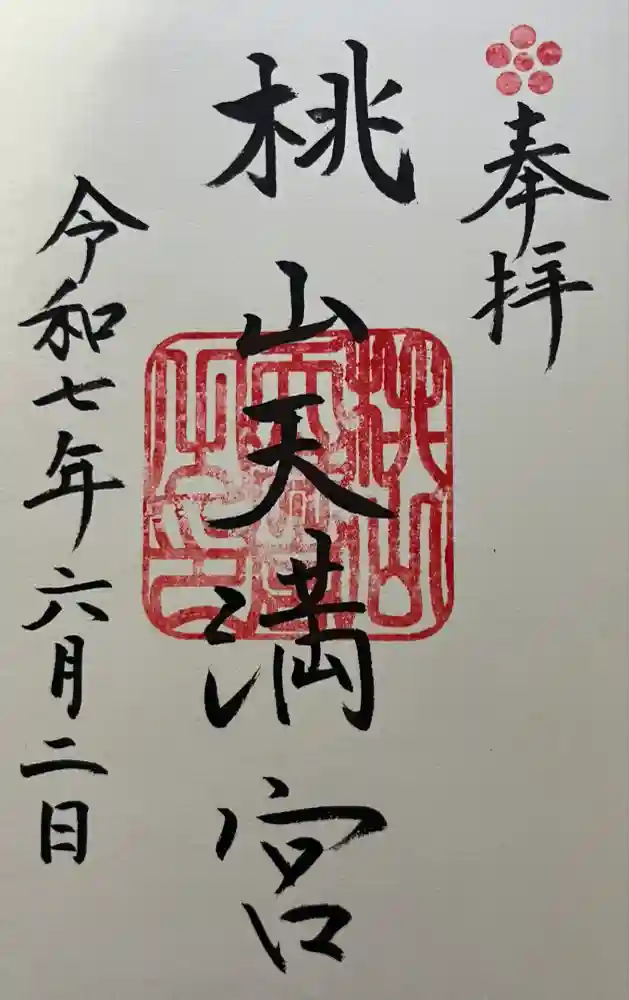 奉拝
桃山天満宮
令和七年六月二日